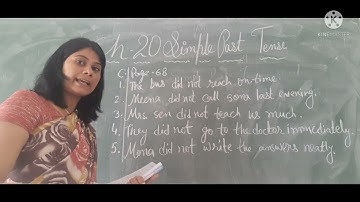 Ch-20 Simple Past Tense
C/Page-68
1. The bus did not reach on time.
2. Meena did not call Sona last evening.
3. Mrs Sen did not teach us much.
4. They did not go to the doctor immediately.
5. Mona did not write the answers neatly.
KINEMASTER